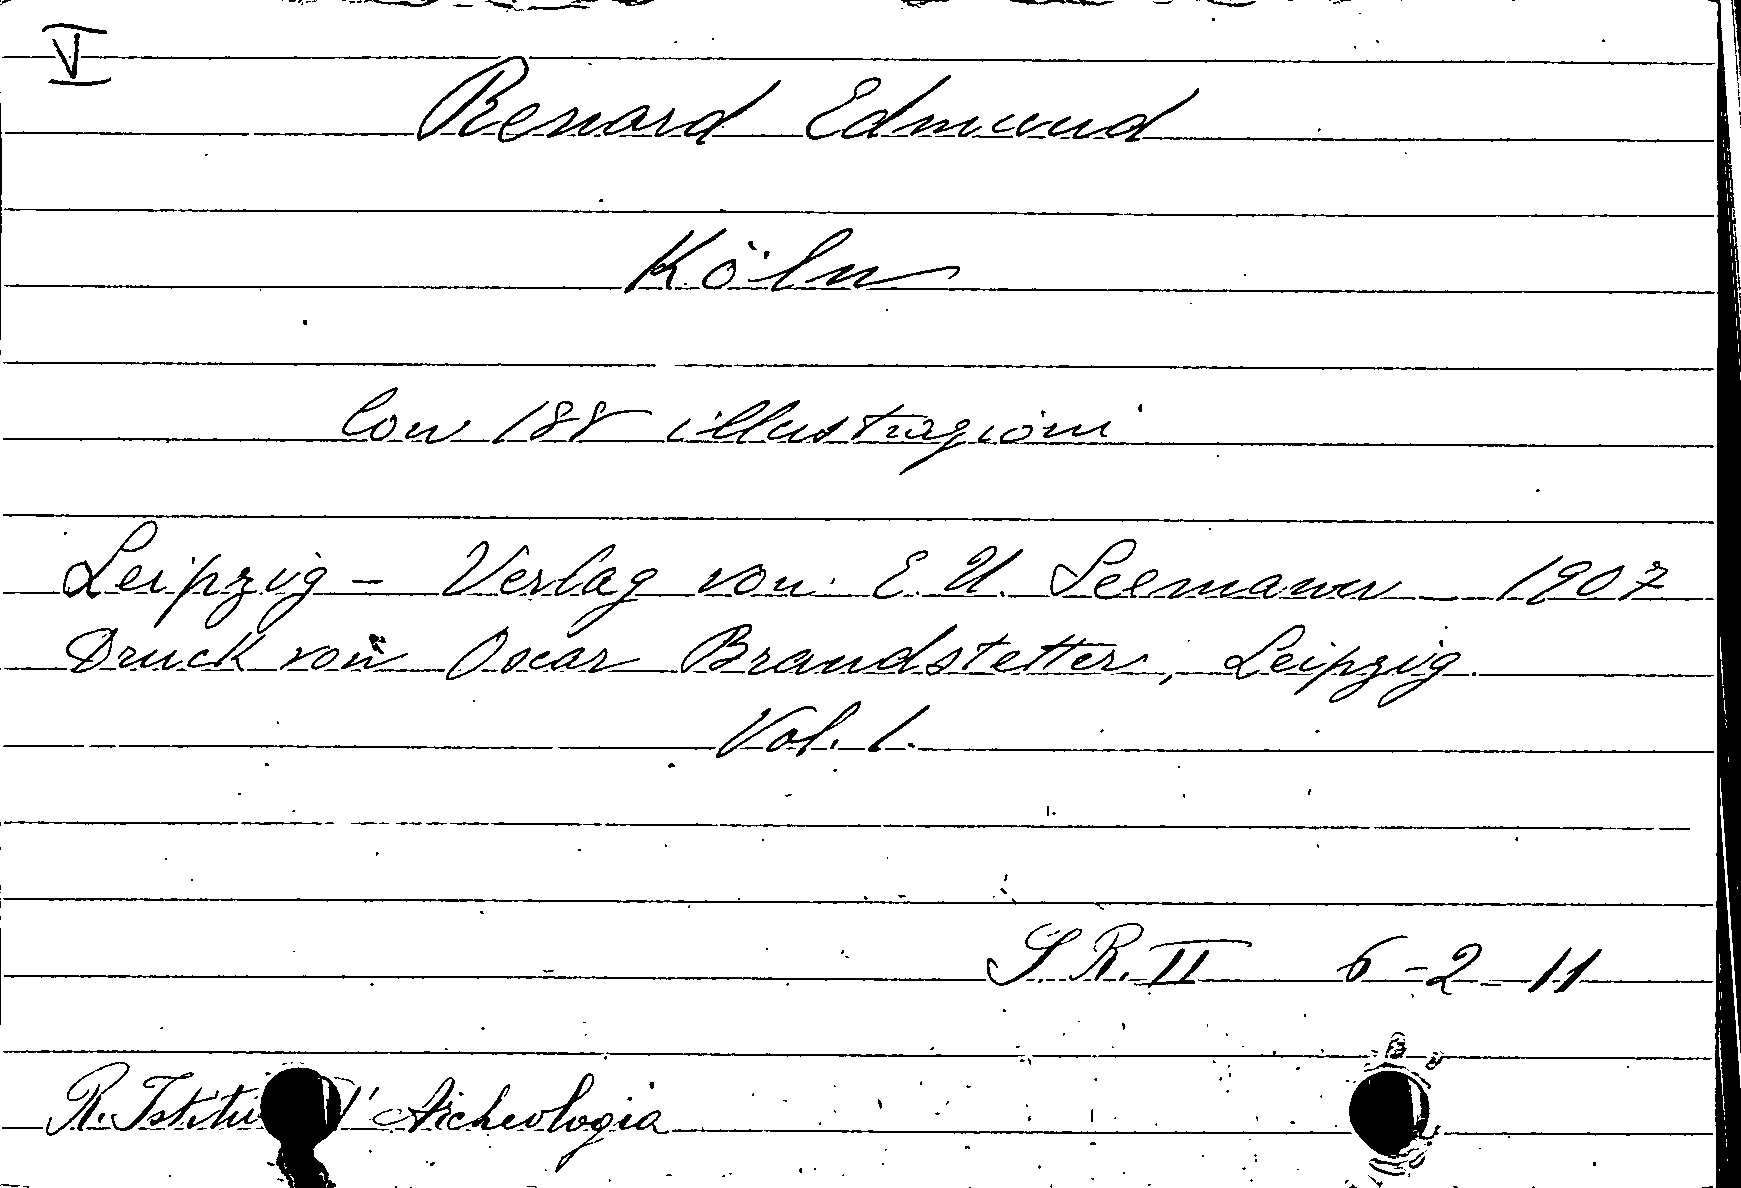 V
Renard Edmund
Köln
Con 188 illustrazioni
Leipzig – Verlag von E. U. Seemann – 1907
Druck von Oscar Brandstetter, Leipzig.
Vol. 1.
S. R. II 6-2-11
R. Istitu d'Archeologia